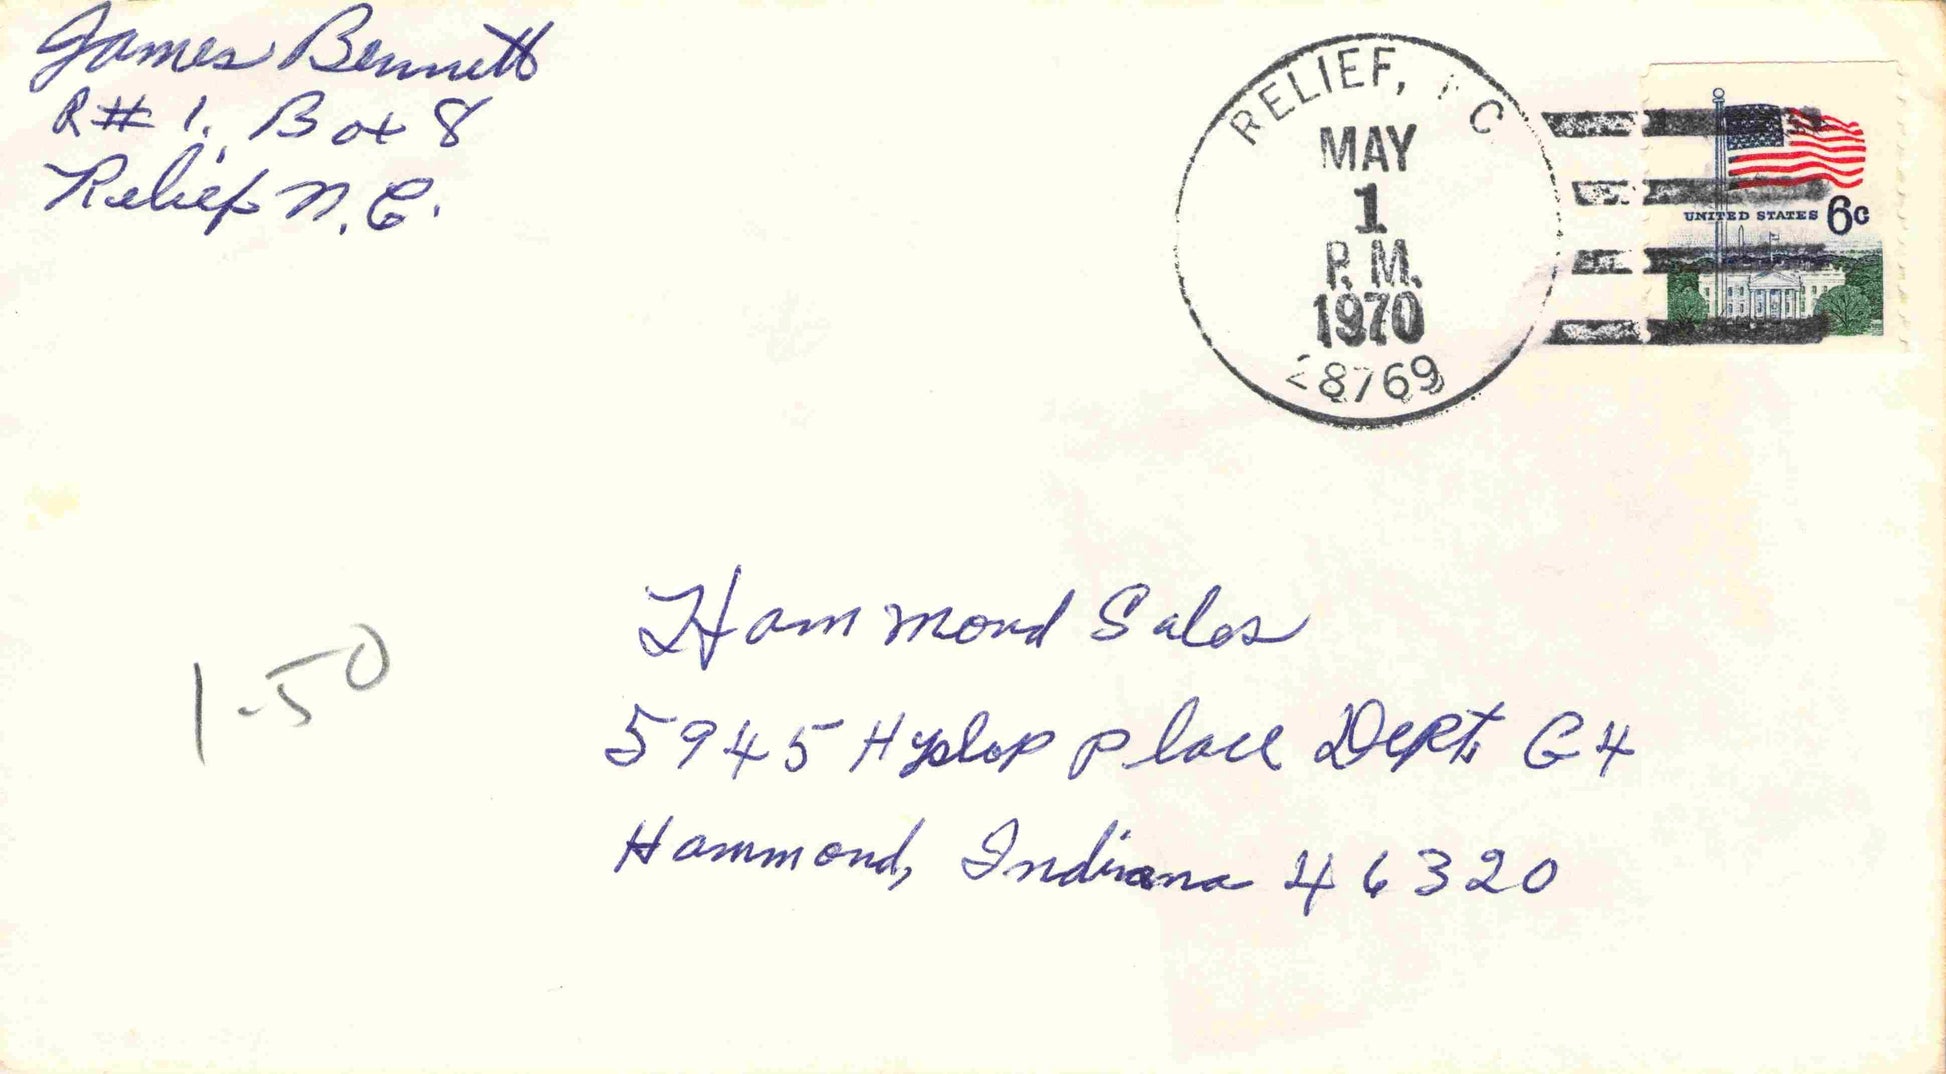 James Bennett
R# 1, Box 8
Relief N.C.
RELIEF, NC
MAY
1
P.M.
1970
28769
UNITED STATES 6c
1.50
Hammond Sales
5945 Hyslop Place Dept. G4
Hammond, Indiana 46320